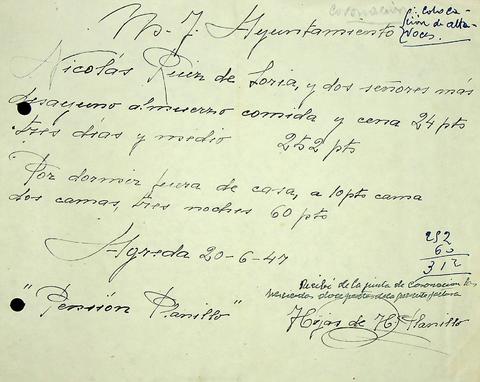 Coronación
: coloca-
ción de alta-
voces.
M. J. Ayuntamiento
Nicolás Ruiz de Loria, y dos señores más
desayuno almuerzo comida y cena 24 pts
tres días y medio 252 pts
Por dormir fuera de casa, a 10 pts cama
dos camas, tres noches 60 pts
Agreda 20-6-47
252
60
312
Recibí de la junta de coronación las
pesetas de la presente factura
"Pensión Planillo"
Hijas de H. Planillo